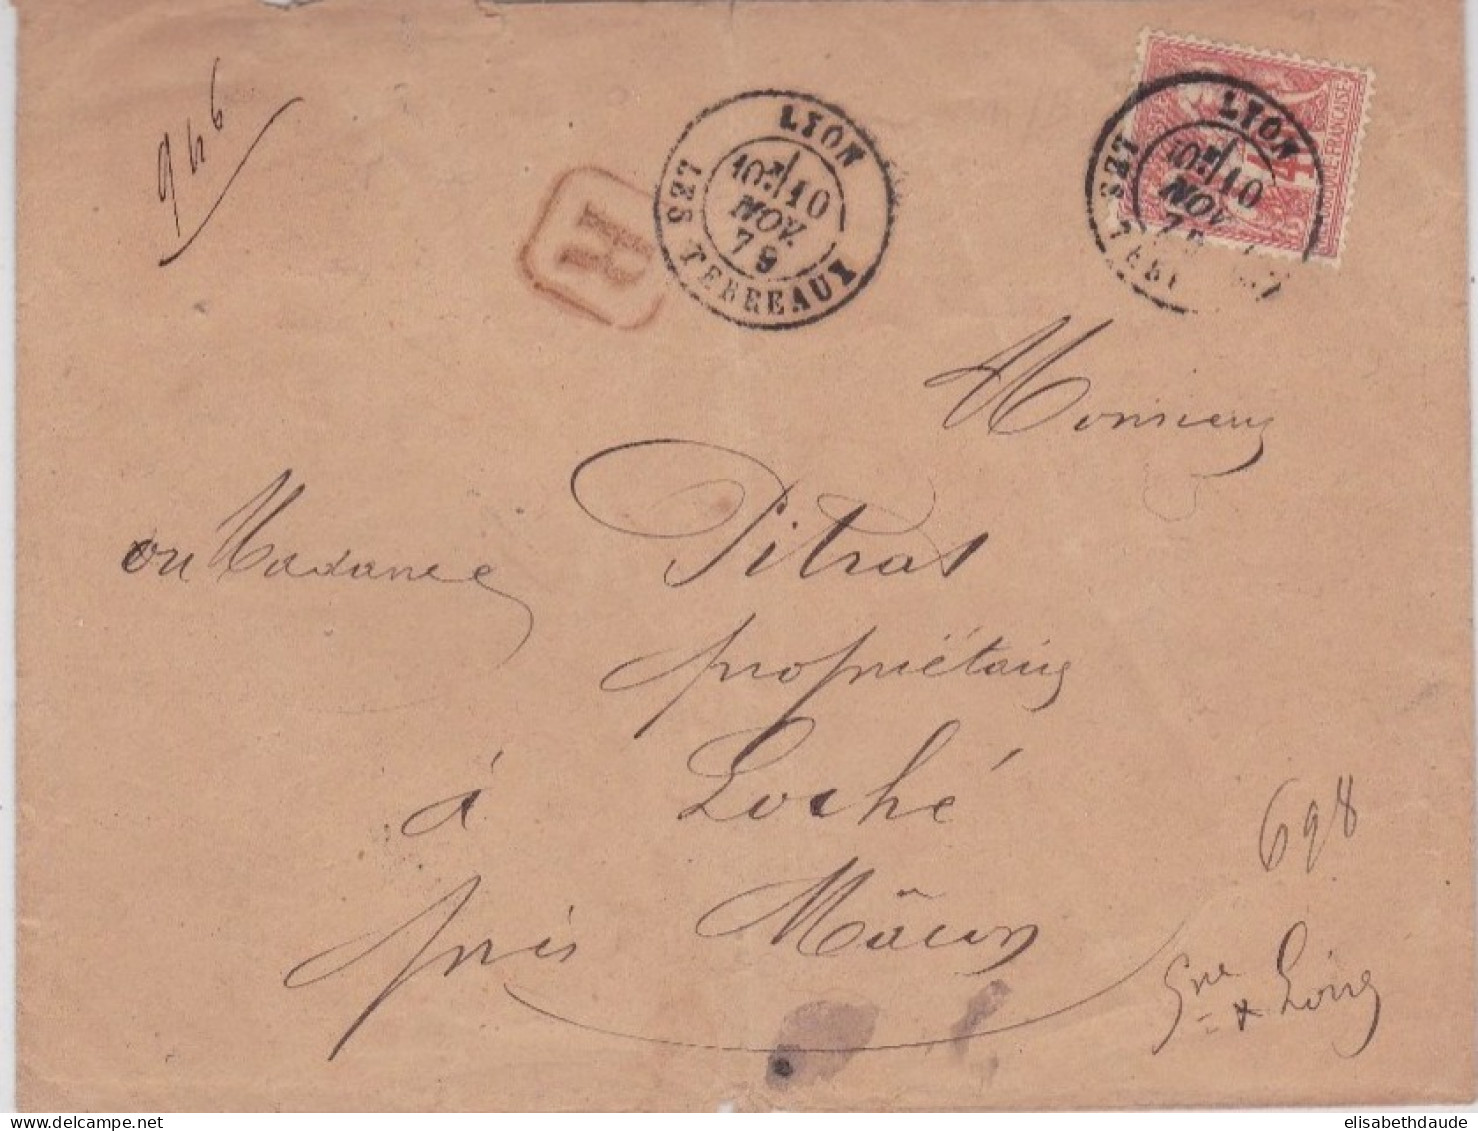 946
R
LYON
10 10
NOV.
79
LES TERREAUX
LYON
10 10
NOV.
79
LES TERREAUX
REPUBLIQUE FRANÇAISE
Monsieur
ou Madame Pitrat
propriétaire
à Loché
près Mâcon
698
Sne & Loire
elisabethdaude